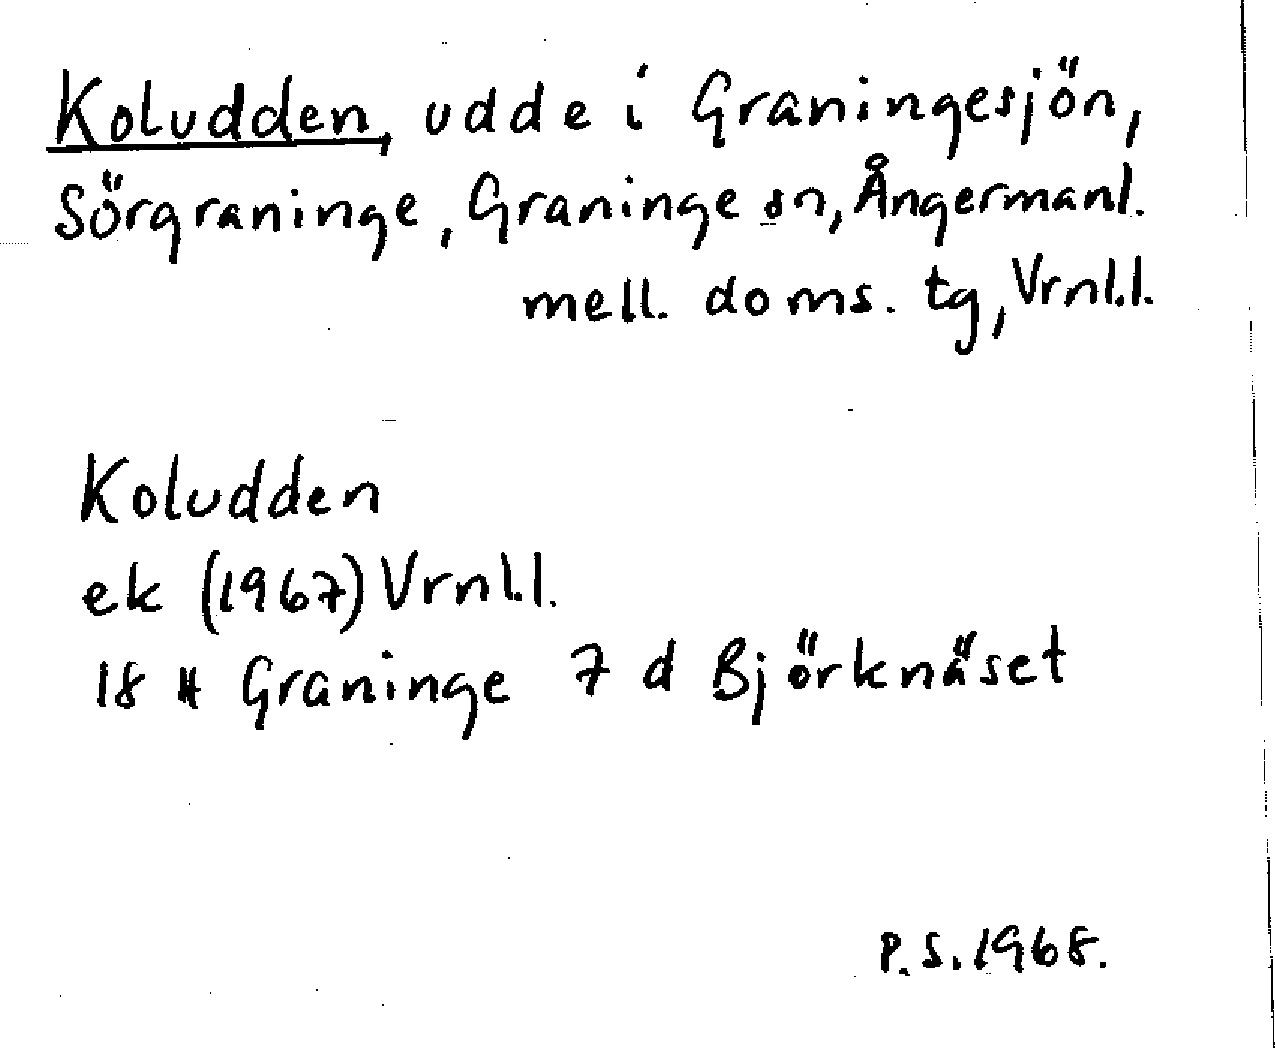 Koludden, udde i Graningesjön,
Sörgraninge, Graninge sn, Ångermanl.
mell. doms. tg, Vrnl.l.
Koludden
ek (1967) Vrnl.l.
18 H Graninge 7 d Björknäset
P.S. 1968.